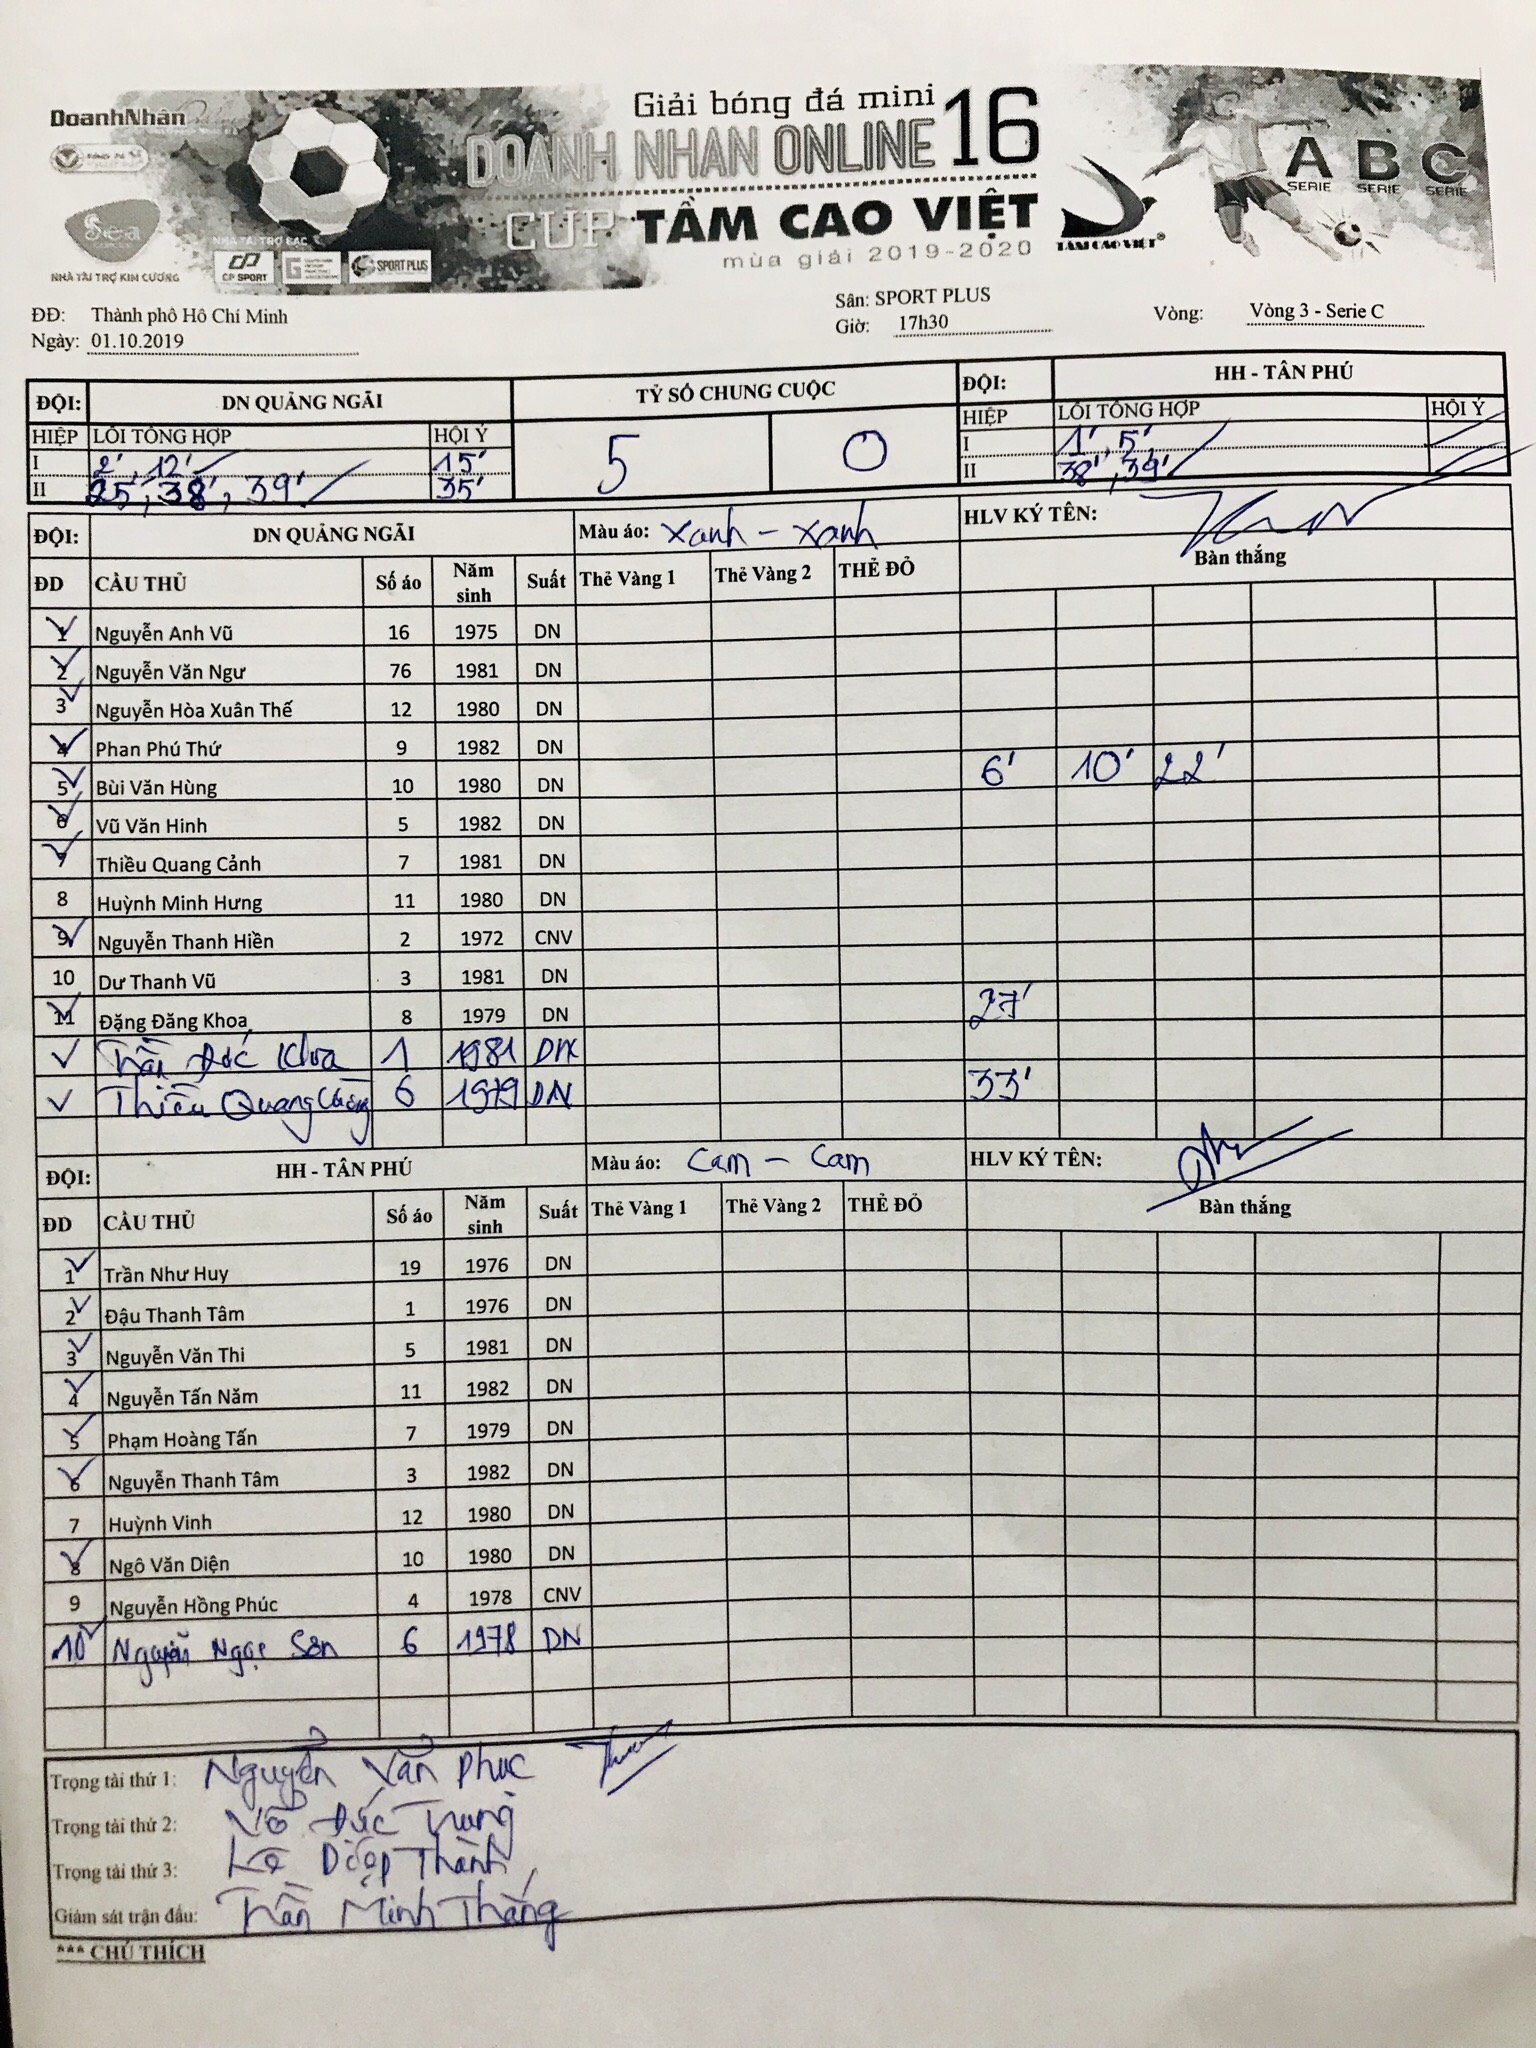 DoanhNhân
Giải bóng đá mini
DOANH NHAN ONLINE 16
CUP TẦM CAO VIỆT
mùa giải 2019-2020
TẦM CAO VIỆT
A B C
SERIE SERIE SERIE
NHÀ TÀI TRỢ BẠC
CP SPORT
SPORT PLUS
NHÀ TÀI TRỢ KIM CƯƠNG
ĐĐ: Thành phố Hồ Chí Minh Sân: SPORT PLUS
Ngày: 01.10.2019 Giờ: 17h30 Vòng: Vòng 3 - Serie C
ĐỘI: DN QUẢNG NGÃI TỶ SỐ CHUNG CUỘC ĐỘI: HH - TÂN PHÚ
HIỆP LỖI TỔNG HỢP HỘI Ý 5 0 HIỆP LỖI TỔNG HỢP HỘI Ý
I 2', 12' 15' I 1', 5'
II 25', 38', 39' 35' II 38', 39'
ĐỘI: DN QUẢNG NGÃI Màu áo: Xanh - Xanh HLV KÝ TÊN:
ĐD CẦU THỦ Số áo Năm sinh Suất Thẻ Vàng 1 Thẻ Vàng 2 THẺ ĐỎ Bàn thắng
1 Nguyễn Anh Vũ 16 1975 DN
2 Nguyễn Văn Ngư 76 1981 DN
3 Nguyễn Hòa Xuân Thế 12 1980 DN
4 Phan Phú Thứ 9 1982 DN
5 Bùi Văn Hùng 10 1980 DN 6' 10' 22'
6 Vũ Văn Hinh 5 1982 DN
7 Thiều Quang Cảnh 7 1981 DN
8 Huỳnh Minh Hưng 11 1980 DN
9 Nguyễn Thanh Hiền 2 1972 CNV
10 Dư Thanh Vũ 3 1981 DN
11 Đặng Đăng Khoa 8 1979 DN 27'
Trần Đức Khoa 1 1981 DN
Thiều Quang 6 1979 DN 33'
ĐỘI: HH - TÂN PHÚ Màu áo: Cam - Cam HLV KÝ TÊN:
ĐD CẦU THỦ Số áo Năm sinh Suất Thẻ Vàng 1 Thẻ Vàng 2 THẺ ĐỎ Bàn thắng
1 Trần Như Huy 19 1976 DN
2 Đậu Thanh Tâm 1 1976 DN
3 Nguyễn Văn Thi 5 1981 DN
4 Nguyễn Tấn Năm 11 1982 DN
5 Phạm Hoàng Tấn 7 1979 DN
6 Nguyễn Thanh Tâm 3 1982 DN
7 Huỳnh Vinh 12 1980 DN
8 Ngô Văn Diện 10 1980 DN
9 Nguyễn Hồng Phúc 4 1978 CNV
10 Nguyễn Ngọc Sơn 6 1978 DN
Trọng tài thứ 1: Nguyễn Văn Phúc
Trọng tài thứ 2: Võ Đức Trung
Trọng tài thứ 3: Lê Diệp Thành
Giám sát trận đấu: Trần Minh Thắng
*** CHÚ THÍCH